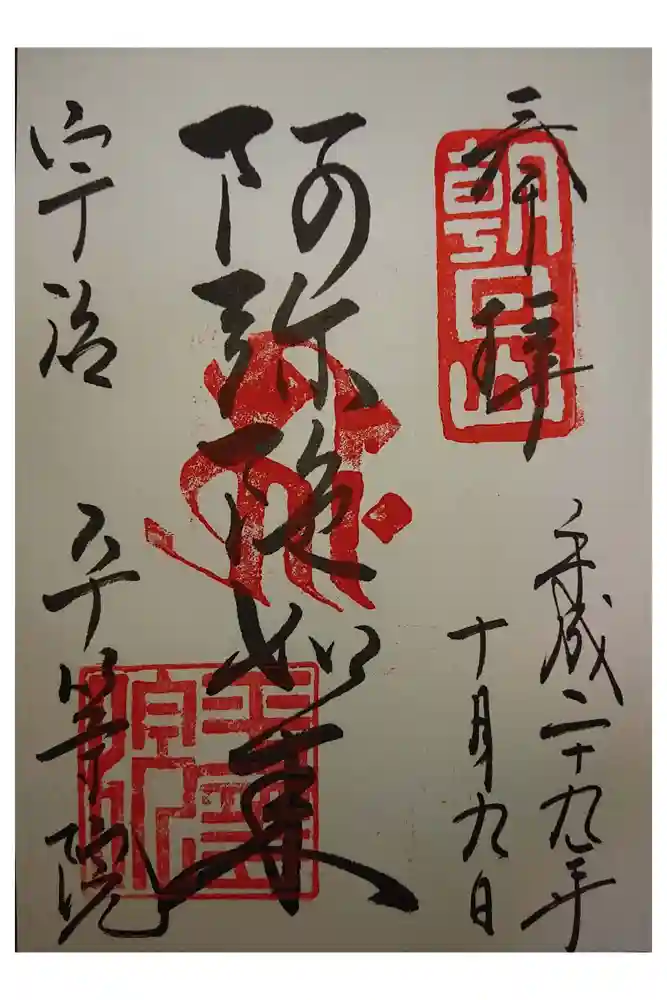 奉拝
朝日山
平成二十九年
十月九日
阿弥陀如来
宇治 平等院